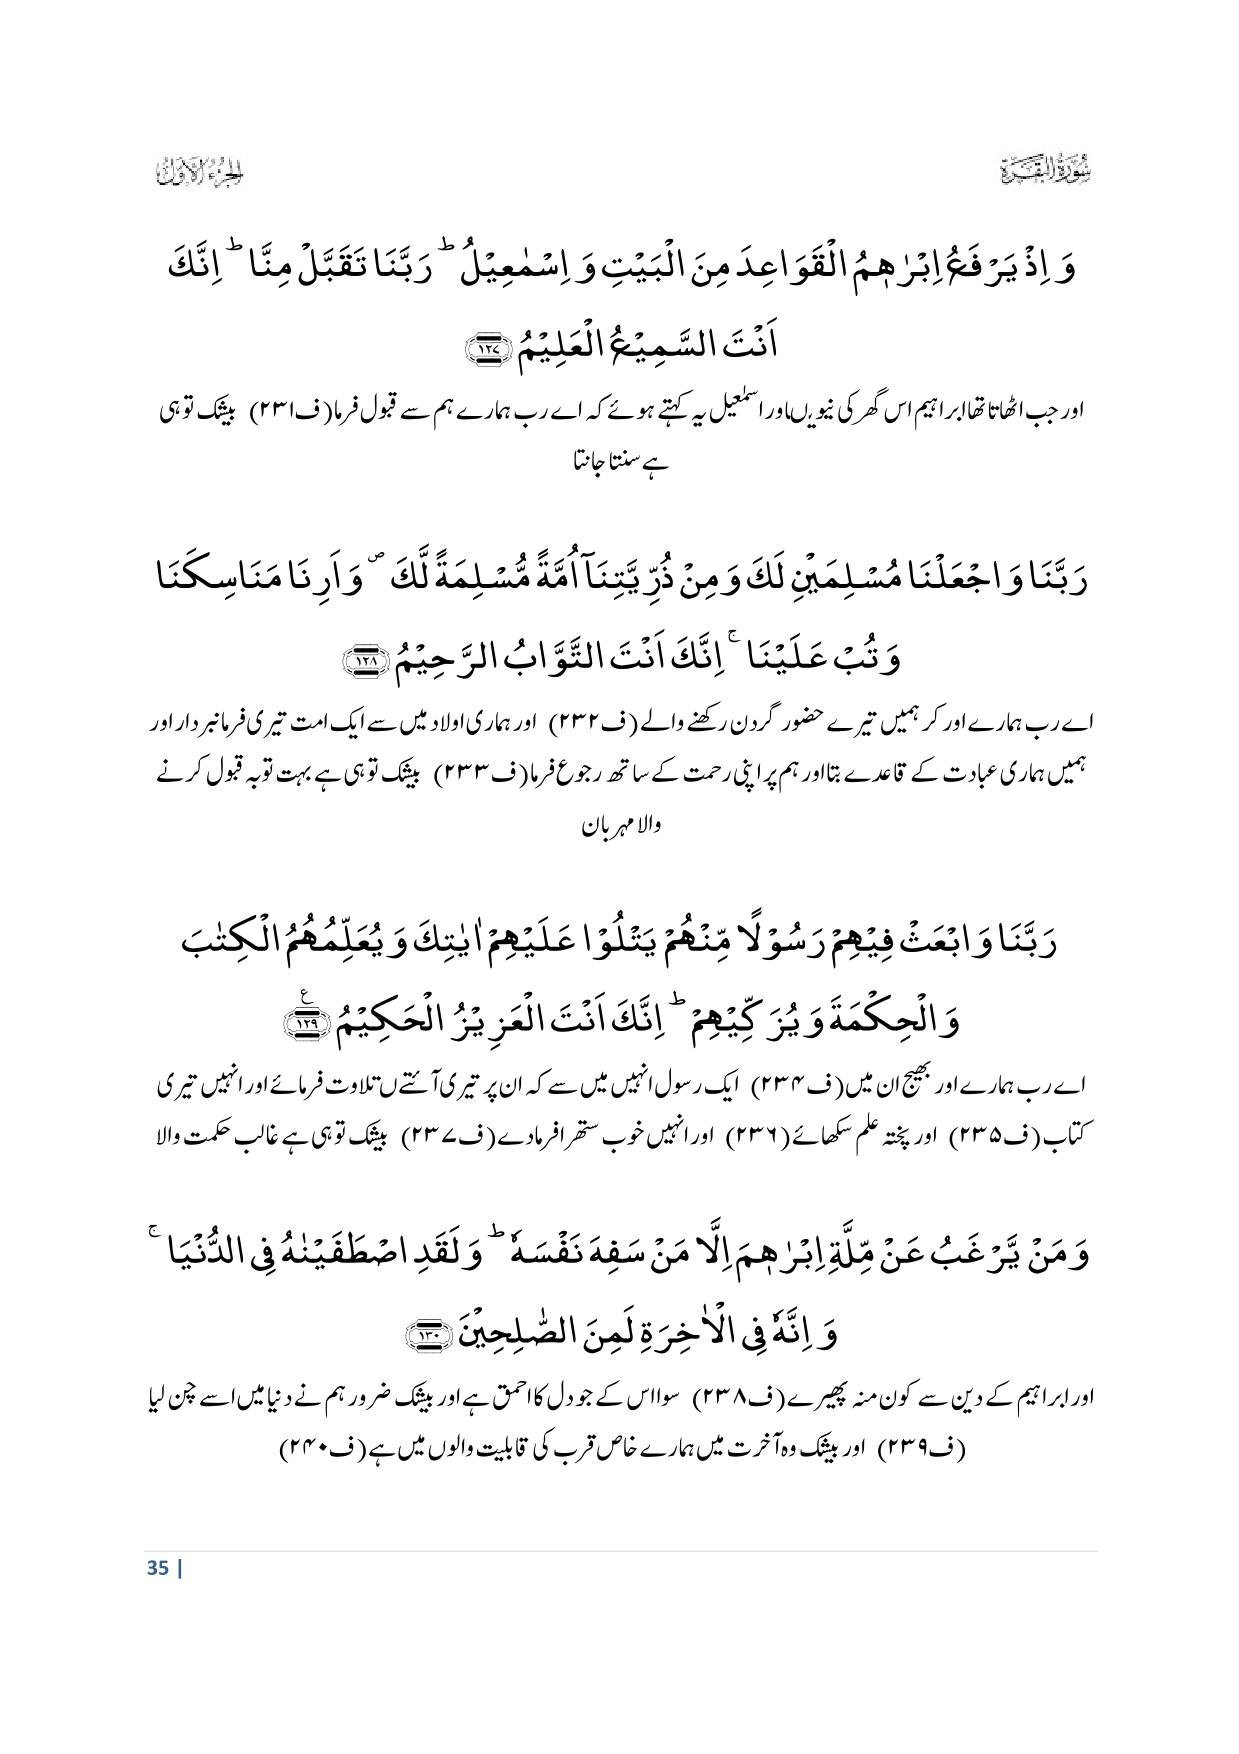 سُوْرَةُ الْبَقَرَة
الجزء الاول
وَ اِذْ یَرْفَعُ اِبْرٰهٖمُ الْقَوَاعِدَ مِنَ الْبَیْتِ وَ اِسْمٰعِیْلُ ؕ رَبَّنَا تَقَبَّلْ مِنَّا ؕ اِنَّكَ
اَنْتَ السَّمِیْعُ الْعَلِیْمُ ﴿۱۲۷﴾
اور جب اٹھاتا تھا ابراہیم اس گھر کی نیویں اور اسمٰعیل یہ کہتے ہوئے کہ اے رب ہمارے ہم سے قبول فرما (ف۲۳۱) بیشک تو ہی
ہے سنتا جانتا
رَبَّنَا وَ اجْعَلْنَا مُسْلِمَیْنِ لَكَ وَ مِنْ ذُرِّیَّتِنَاۤ اُمَّةً مُّسْلِمَةً لَّكَ ۪ وَ اَرِنَا مَنَاسِكَنَا
وَ تُبْ عَلَیْنَا ۚ اِنَّكَ اَنْتَ التَّوَّابُ الرَّحِیْمُ ﴿۱۲۸﴾
اے رب ہمارے اور کر ہمیں تیرے حضور گردن رکھنے والے (ف۲۳۲) اور ہماری اولاد میں سے ایک امت تیری فرمانبردار اور
ہمیں ہماری عبادت کے قاعدے بتا اور ہم پر اپنی رحمت کے ساتھ رجوع فرما (ف۲۳۳) بیشک تو ہی ہے بہت توبہ قبول کرنے
والا مہربان
رَبَّنَا وَ ابْعَثْ فِیْهِمْ رَسُوْلًا مِّنْهُمْ یَتْلُوْا عَلَیْهِمْ اٰیٰتِكَ وَ یُعَلِّمُهُمُ الْكِتٰبَ
وَ الْحِكْمَةَ وَ یُزَكِّیْهِمْ ؕ اِنَّكَ اَنْتَ الْعَزِیْزُ الْحَكِیْمُ ﴿۱۲۹﴾ ع
اے رب ہمارے اور بھیج ان میں (ف۲۳۴) ایک رسول انہیں میں سے کہ ان پر تیری آئتےں تلاوت فرمائے اور انہیں تیری
کتاب (ف۲۳۵) اور پختہ علم سکھائے (۲۳۶) اور انہیں خوب ستھرا فرمادے (ف۲۳۷) بیشک تو ہی ہے غالب حکمت والا
وَ مَنْ یَّرْغَبُ عَنْ مِّلَّةِ اِبْرٰهٖمَ اِلَّا مَنْ سَفِهَ نَفْسَهٗ ؕ وَ لَقَدِ اصْطَفَیْنٰهُ فِی الدُّنْیَا ۚ
وَ اِنَّهٗ فِی الْاٰخِرَةِ لَمِنَ الصّٰلِحِیْنَ ﴿۱۳۰﴾
اور ابراہیم کے دین سے کون منہ پھیرے (ف۲۳۸) سوا اس کے جو دل کا احمق ہے اور بیشک ضرور ہم نے دنیا میں اسے چن لیا
(ف۲۳۹) اور بیشک وہ آخرت میں ہمارے خاص قرب کی قابلیت والوں میں ہے (ف۲۴۰)
35 |